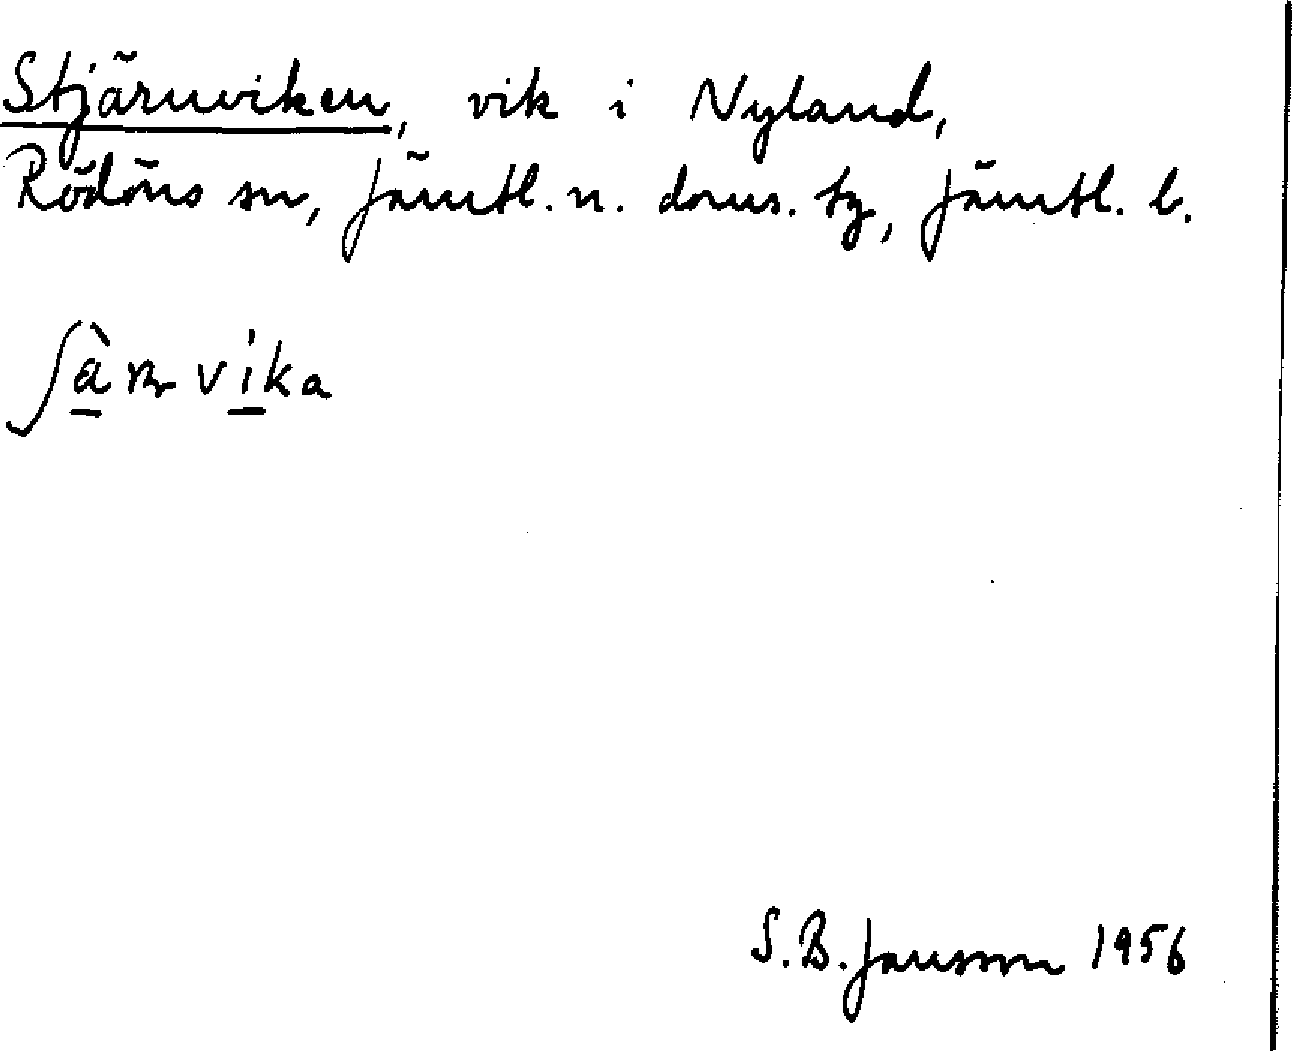 Stjärnviken, vik i Nyland,
Rödöns sn, Jämtl. n. doms. tg, Jämtl. l.
ʃà̱rnvi̱ka
S.B. Jansson 1956